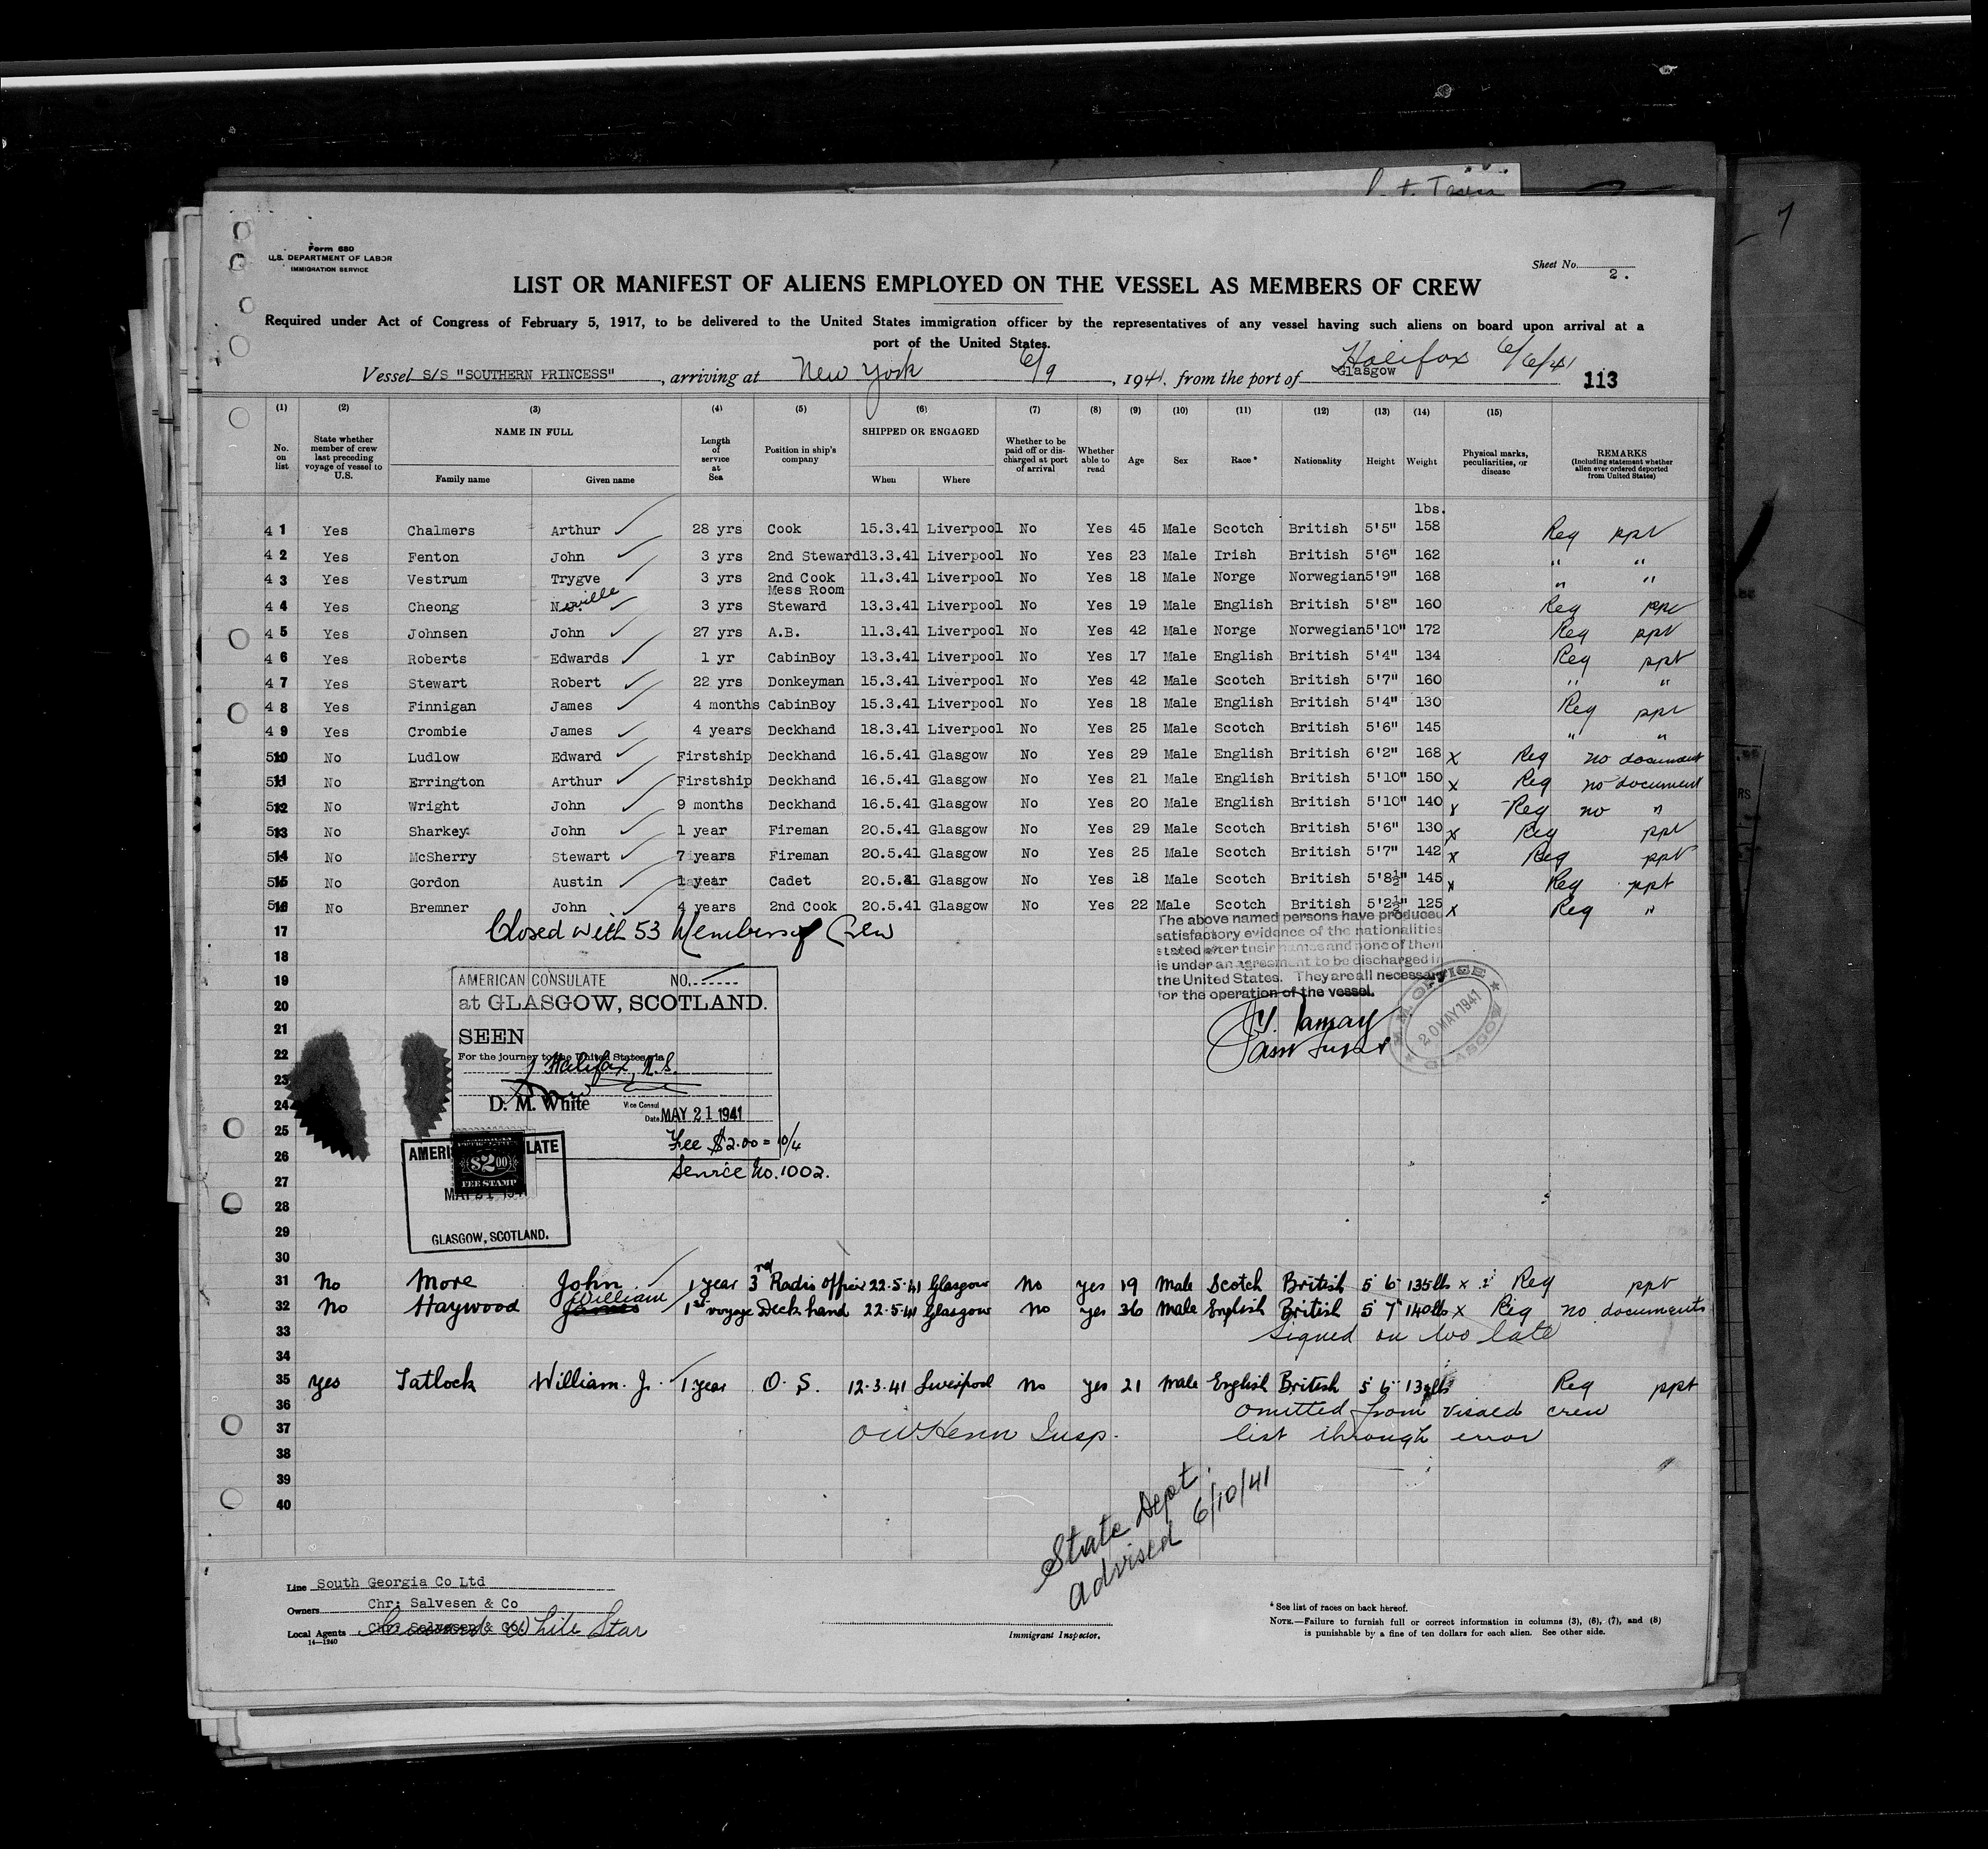 Form 680
U.S. DEPARTMENT OF LABOR
IMMIGRATION SERVICE
Sheet No. 2.
LIST OR MANIFEST OF ALIENS EMPLOYED ON THE VESSEL AS MEMBERS OF CREW
Required under Act of Congress of February 5, 1917, to be delivered to the United States immigration officer by the representatives of any vessel having such aliens on board upon arrival at a
port of the United States.
Vessel S/S "SOUTHERN PRINCESS", arriving at New York 6/9, 1941, from the port of Glasgow Halifax 6/6/41 113
(1) (2) (3) (4) (5) (6) (7) (8) (9) (10) (11) (12) (13) (14) (15)
No. on list
State whether member of crew last preceding voyage of vessel to U.S.
NAME IN FULL
Family name Given name
Length of service at Sea
Position in ship's company
SHIPPED OR ENGAGED
When Where
Whether to be paid off or discharged at port of arrival
Whether able to read
Age Sex Race* Nationality Height Weight
Physical marks, peculiarities, or disease
REMARKS
(Including statement whether alien ever ordered deported from United States)
lbs.
4 1 Yes Chalmers Arthur 28 yrs Cook 15.3.41 Liverpool No Yes 45 Male Scotch British 5'5" 158 Reg ppt
4 2 Yes Fenton John 3 yrs 2nd Steward 13.3.41 Liverpool No Yes 23 Male Irish British 5'6" 162 " "
4 3 Yes Vestrum Trygve 3 yrs 2nd Cook 11.3.41 Liverpool No Yes 18 Male Norge Norwegian 5'9" 168 " "
4 4 Yes Cheong Neville 3 yrs Mess Room Steward 13.3.41 Liverpool No Yes 19 Male English British 5'8" 160 Reg ppt
4 5 Yes Johnsen John 27 yrs A.B. 11.3.41 Liverpool No Yes 42 Male Norge Norwegian 5'10" 172 Reg ppt
4 6 Yes Roberts Edwards 1 yr CabinBoy 13.3.41 Liverpool No Yes 17 Male English British 5'4" 134 Reg ppt
4 7 Yes Stewart Robert 22 yrs Donkeyman 15.3.41 Liverpool No Yes 42 Male Scotch British 5'7" 160 " "
4 8 Yes Finnigan James 4 months CabinBoy 15.3.41 Liverpool No Yes 18 Male English British 5'4" 130 Reg ppt
4 9 Yes Crombie James 4 years Deckhand 18.3.41 Liverpool No Yes 25 Male Scotch British 5'6" 145 " "
10 No Ludlow Edward Firstship Deckhand 16.5.41 Glasgow No Yes 29 Male English British 6'2" 168 x Reg no document
11 No Errington Arthur Firstship Deckhand 16.5.41 Glasgow No Yes 21 Male English British 5'10" 150 x Reg no document
12 No Wright John 9 months Deckhand 16.5.41 Glasgow No Yes 20 Male English British 5'10" 140 x Reg no "
13 No Sharkey John 1 year Fireman 20.5.41 Glasgow No Yes 29 Male Scotch British 5'6" 130 x Reg ppt
14 No McSherry Stewart 7 years Fireman 20.5.41 Glasgow No Yes 25 Male Scotch British 5'7" 142 x Reg ppt
15 No Gordon Austin 1 year Cadet 20.5.41 Glasgow No Yes 18 Male Scotch British 5'8½" 145 x Reg ppt
16 No Bremner John 4 years 2nd Cook 20.5.41 Glasgow No Yes 22 Male Scotch British 5'2½" 125 x Reg "
17 Closed with 53 Members of Crew
The above named persons have produced
satisfactory evidence of the nationalities
stated after their names and none of them
is under an agreement to be discharged in
the United States. They are all necessary
for the operation of the vessel.
18
19
20
21
22
23
24
25
26
27
28
29
30
AMERICAN CONSULATE NO.
at GLASGOW, SCOTLAND.
SEEN
For the journey to the United States via
Halifax, N.S.
D. M. White Vice Consul
Date MAY 21 1941
Fee $2.00 = 10/4
Service No. 1002.
20 MAY 1941
GLASGOW
$2.00
FEE STAMP
GLASGOW, SCOTLAND.
31 No More John 1 year 3rd Radio Officer 22.5.41 Glasgow No yes 19 Male Scotch British 5 6 135lbs x Reg ppt
32 No Haywood William James 1st voyage Deck hand 22.5.41 Glasgow No yes 36 Male English British 5 7 140lbs x Reg no documents
33 signed on too late
34
35 yes Tatlock William. J. 1 year O. S. 12.3.41 Liverpool No yes 21 Male English British 5 6 Reg ppt
36 omitted from visaed crew
37 list through error
Insp.
38
39
40
State Dept.
advised 6/10/41
Line South Georgia Co Ltd
Owners Chr: Salvesen & Co
Local Agents Chr: Salvesen & Co. Cunard White Star
14—1240
Immigrant Inspector.
* See list of races on back hereof.
NOTE.—Failure to furnish full or correct information in columns (3), (6), (7), and (8)
is punishable by a fine of ten dollars for each alien. See other side.